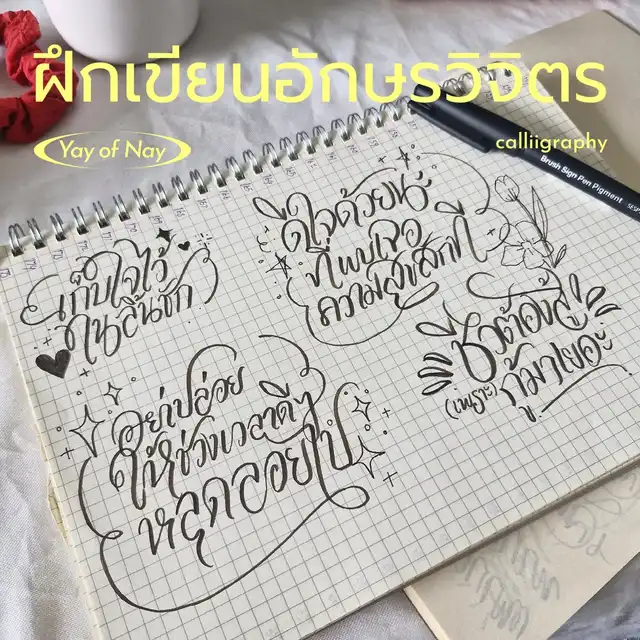 ฝึกเขียนอักษรวิจิตร
Yay of Nay
calliigraphy
Brush Sign Pen Pigment
ดีใจด้วยนะ
ที่พบเจอ
ความสุขสักที
เก็บใจไว้
ในลิ้นชัก
ชีวิตต้องสู้
(เพราะ) กู้มาเยอะ
อย่าปล่อย
ให้ช่วงเวลาดีๆ
หลุดลอยไป